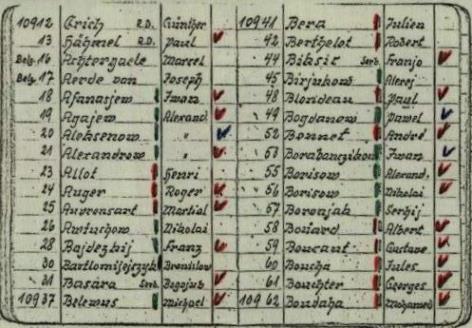 10912 Erich R.D. Günther
13 Hähnel R.D. Paul
Belg. 16 Achtergaele Marcel
Belg. 17 Aerde van Joseph
18 Afanasjew Iwan
19 Agajew Alexand.
20 Aleksenow "
21 Alexandrow "
23 Allot Henri
24 Auger Roger
25 Auvronsart Martial
26 Awtuchow Nikolai
28 Bajdezkij Franz
30 Bartlomijejczyk Bronislaw
31 Basára Serb. Bogojub
10937 Belewus Michael
10941 Bera Julien
42 Berthelot Robert
44 Biksic Serb. Franjo
45 Birjukow Alexej
48 Blondeau Paul
49 Bogdanow Pawel
52 Bonnet André
53 Borabanzikow Iwan
55 Borisow Alexand.
56 Borisow Nikolai
57 Boronjak Serhij
58 Bouard Albert
59 Boucant Gustave
60 Boucha Jules
61 Bouchter Georges
10962 Boudaha Mohamed